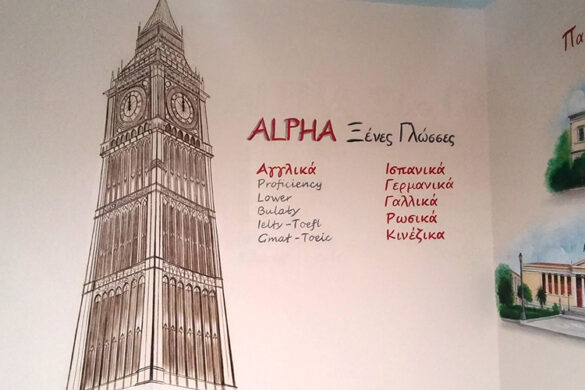 ALPHA Ξένες Γλώσσες
Αγγλικά
Proficiency
Lower
Bulaty
Ielty - Toefl
Gmat - Toeic
Ισπανικά
Γερμανικά
Γαλλικά
Ρωσικά
Κινέζικα